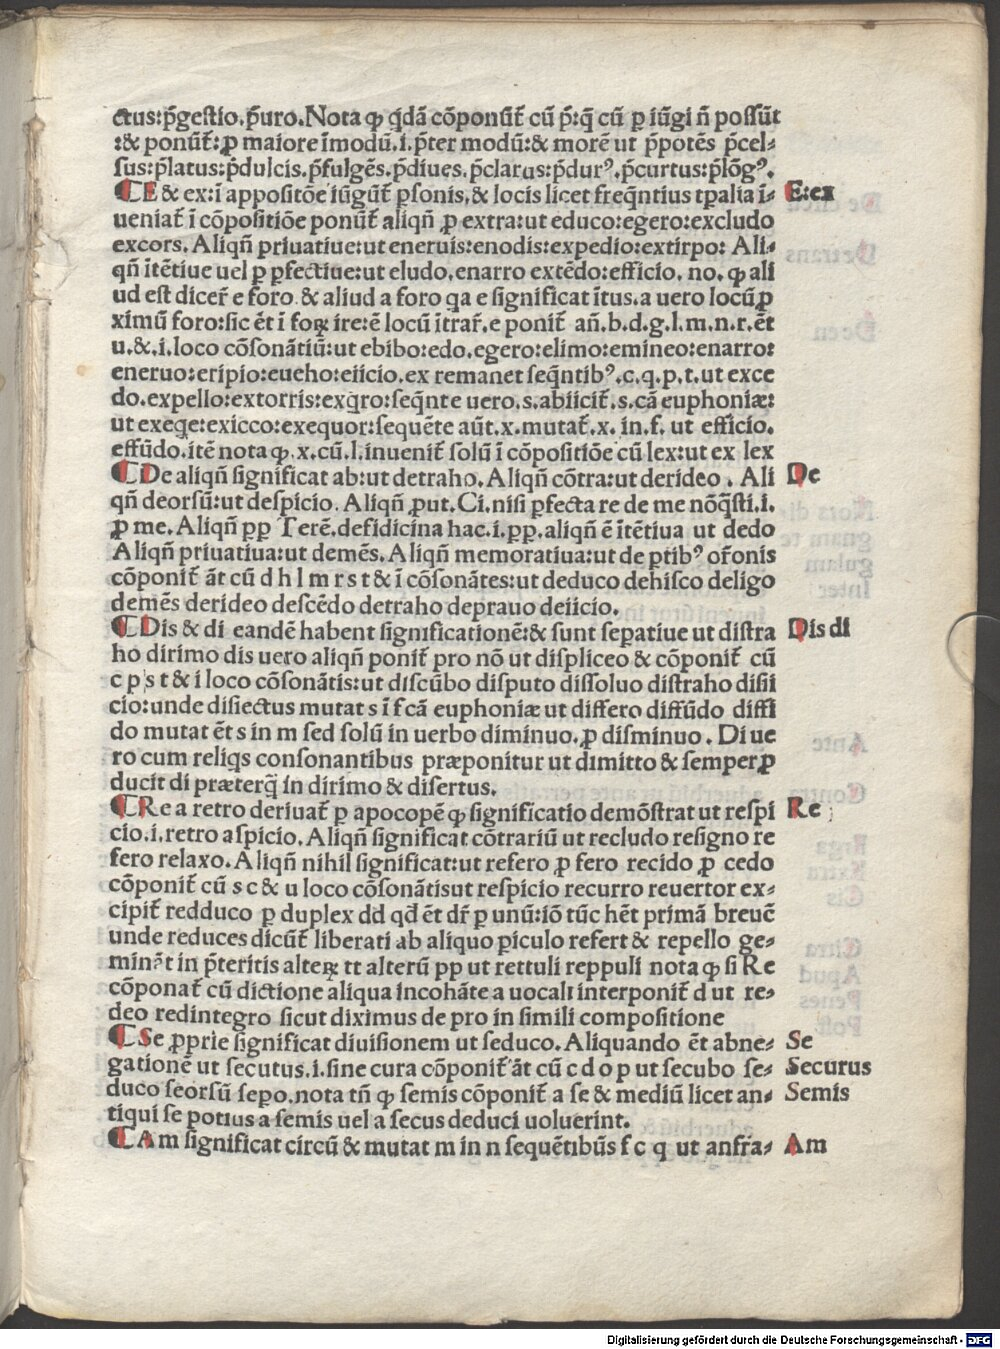 ctus:p̄gestio.p̄uro.Nota ꝙ q̇dã cõponũt̃ cũ p̄:q̃ cũ ꝑ iũgi ñ possũt
:& ponũt̃:ꝓ maiore ĩmodũ.i.p̄ter modũ:& morẽ ut p̄potẽs p̄cel⸗
sus:p̄latus:p̄dulcis.p̄fulgẽs.p̄diues.p̄clarus:p̄durꝰ.p̄curtus:p̄lõgꝰ.
¶E & ex:ĩ appositõe iũgũt̃ ꝑsonis.& locis licet freq̃ntius tꝑalia ĩ⸗ E:ex
ueniat̃ ĩ cõpositiõe ponũt̃ aliqñ ꝓ extra:ut educo:egero:excludo
excors. Aliqñ priuatiue:ut eneruis:enodis:expedio:extirpo: Ali⸗
qñ ĩtẽtiue uel ꝑ ꝑfectiue:ut eludo.enarro extẽdo:efficio. no. ꝙ ali
ud est dicer̃ e foro & aliud a foro q̇a e significat ĩtus.a uero locũ ꝓ
ximũ foro:sic ẽt ĩ foꝝ ire:ẽ locũ ĩtrar̃.e ponit̃ añ.b.d.g.l.m.n.r.ẽt
u.&.i.loco cõsonãtiũ:ut ebibo:edo.egero:elimo:emineo:enarro:
eneruo:eripio:eueho:eiicio.ex remanet seq̃ntibꝰ.c.q.p.t.ut exce
do.expello:extorris:exq̇ro:seq̃nte uero.s.abiicit̃.s.cã euphoniæ:
ut exeqe:exicco:exequor:sequẽte aũt.x.mutat̃.x. in.f. ut efficio.
effũdo.itẽ nota ꝙ.x.cũ.l.inuenit̃ solũ ĩ cõpositiõe cũ lex:ut ex lex
¶De aliqñ significat ab:ut detraho. Aliqñ cõtra:ut derideo. Ali De
qñ deorsũ:ut despicio. Aliqñ ꝓut. Ci.nisi ꝑfecta re de me nõq̃sti.i.
ꝓ me. Aliqñ ꝑꝑ Terẽ.defidicina hac.i.ꝑꝑ.aliqñ ẽ ĩtẽtiua ut dedo
Aliqñ priuatiua:ut demẽs. Aliqñ memoratiua:ut de ꝑtibꝰ or̃onis
cõponit̃ ãt cũ d h l m r s t & ĩ cõsonãtes:ut deduco dehisco deligo
demẽs derideo descẽdo detraho deprauo deiicio.
¶Dis & di eandẽ habent significationẽ:& sunt seꝑatiue ut distra Dis di
ho dirimo dis uero aliqñ ponit̃ pro nõ ut displiceo & cõponit̃ cũ
c p s t & i loco cõsonãtis:ut discũbo disputo dissoluo distraho disii
cio:unde disiectus mutat s ĩ f cã euphoniæ ut differo diffũdo diffi
do mutat ẽt s in m sed solũ in uerbo diminuo.ꝓ disminuo. Di ue
ro cum reliq̇s consonantibus præponitur ut dimitto & semper ꝓ
ducit di præterq̃ in dirimo & disertus.
¶Re a retro deriuat̃ ꝑ apocopẽ ꝙ significatio demõstrat ut respi Re
cio.i.retro aspicio. Aliqñ significat cõtrariũ ut recludo resigno re
fero relaxo. Aliqñ nihil significat:ut refero ꝓ fero recido ꝓ cedo
cõponit̃ cũ s c & u loco cõsonãtisut respicio recurro reuertor ex⸗
cipit̃ redduco ꝑ duplex dd qd̃ ẽt dr̃ ꝑ unũ:iõ tũc hẽt primã breuẽ
unde reduces dicũt̃ liberati ab aliquo ꝑiculo refert & repello ge⸗
minãt in p̄teritis alteꝝ tt alterũ pp ut rettuli reppuli nota ꝙ si Re
cõponat̃ cũ dictione aliqua incohãte a uocali interponit̃ d ut re⸗
deo redintegro sicut diximus de pro in simili compositione
¶Se ꝓprie significat diuisionem ut seduco. Aliquando ẽt abne⸗ Se
gationẽ ut secutus.i.sine cura cõponit̃ ãt cũ c d o p ut secubo se⸗ Securus
duco seorsũ seꝑo.nota tñ ꝙ semis cõponit̃ a se & mediũ licet an⸗ Semis
tiqui se potius a semis uel a secus deduci uoluerint.
¶Am significat circũ & mutat m in n sequẽtibus f c q ut anfra⸗ Am
Digitalisierung gefördert durch die Deutsche Forschungsgemeinschaft - DFG